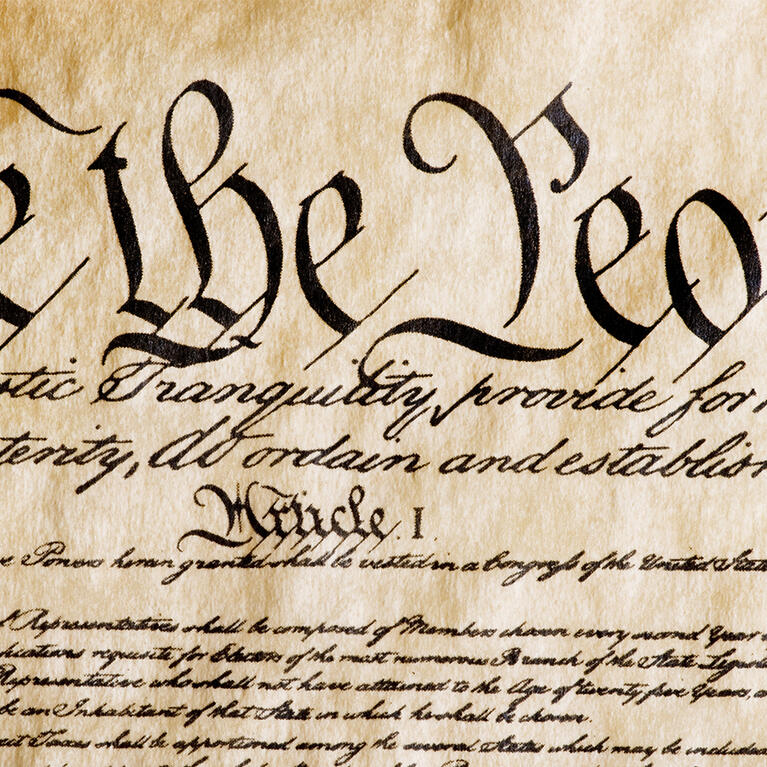 e the Peo
stic Tranquility, provide for
terity, do ordain and establish
Article. I
e Powers herein granted shall be vested in a Congress of the United State
Representatives shall be composed of Members chosen every second Year
ications requisite for Electors of the most numerous Branch of the State Legisl
Representative who shall not have attained to the Age of twenty five Years, a
be an Inhabitant of that State in which he shall be chosen.
ect Taxes shall be apportioned among the several States which may be included